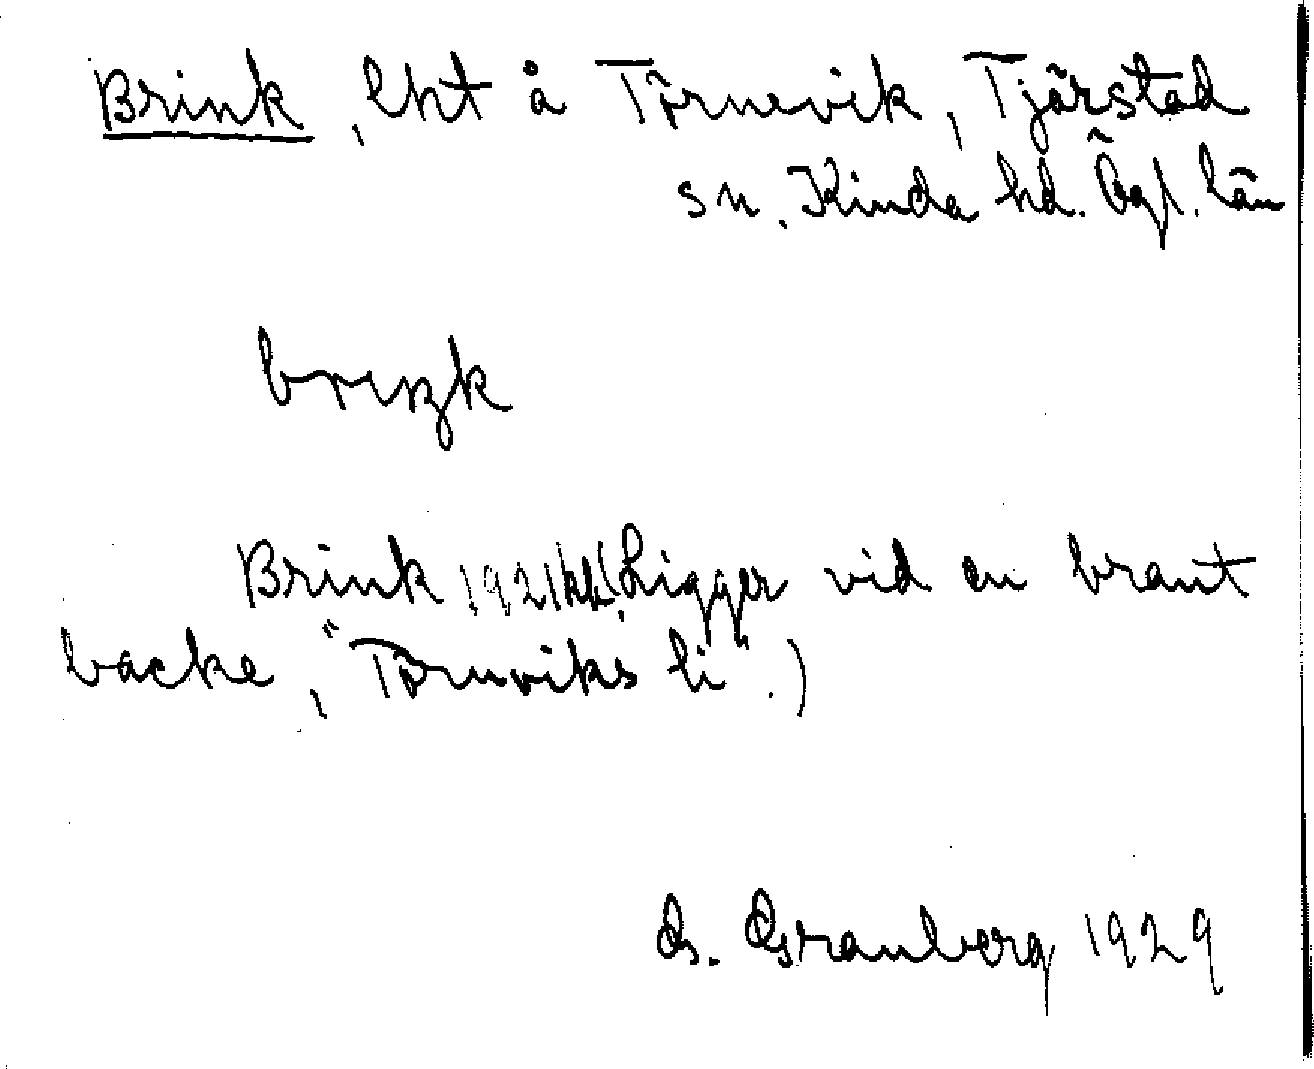 Brink, lht å Törnevik, Tjärstad
sn. Kinda hd. Ögl. län
briŋk
Brink 1921 kk (Ligger vid en brant
backe, "Törnviks li".)
G. Granberg 1929